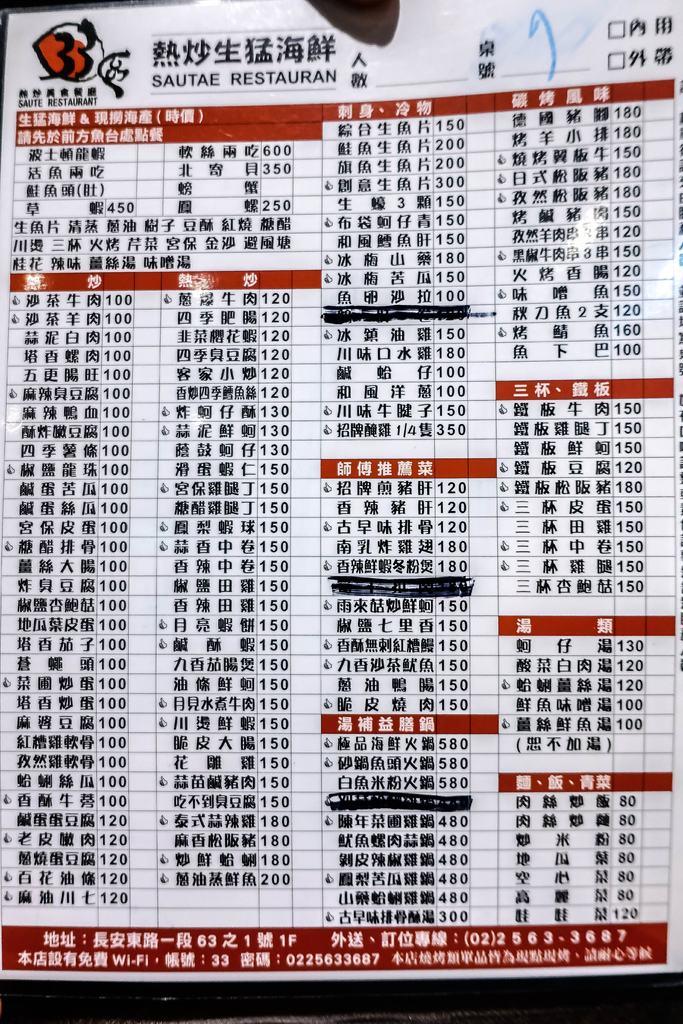 33
熱炒美食餐廳
SAUTE RESTAURANT
熱炒生猛海鮮
SAUTAE RESTAURAN
人數
桌號
7
□內用
□外帶
生猛海鮮&現撈海產(時價)
請先於前方魚台處點餐
波士頓龍蝦
軟絲兩吃600
活魚兩吃
北寄貝350
鮭魚頭(肚)
螃蟹
草蝦450
鳳螺250
生魚片 清蒸 蔥油 樹子 豆酥 紅燒 糖醋
川燙 三杯 火烤 芹菜 宮保 金沙 避風塘
桂花 辣味 薑絲湯 味噌湯
熱炒
沙茶牛肉100
沙茶羊肉100
蒜泥白肉100
塔香螺肉100
五更腸旺100
麻辣臭豆腐100
麻辣鴨血100
酥炸嫩豆腐100
四季薯條100
椒鹽龍珠100
鹹蛋苦瓜100
鹹蛋絲瓜100
宮保皮蛋100
糖醋排骨100
薑絲大腸100
炸臭豆腐100
椒鹽杏鮑菇100
地瓜葉皮蛋100
塔香茄子100
蒼蠅頭100
菜圃炒蛋100
塔香炒蛋100
麻婆豆腐100
紅糟雞軟骨100
孜然雞軟骨100
蛤蜊絲瓜100
香酥牛蒡100
鹹蛋蛋豆腐120
老皮嫩肉120
蔥燒蛋豆腐120
百花油條120
麻油川七120
熱炒
蔥爆牛肉120
四季肥腸120
韭菜櫻花蝦120
四季臭豆腐120
客家小炒120
香炒四季鱈魚絲120
炸蚵仔酥130
蒜泥鮮蚵130
蔭鼓蚵仔130
滑蛋蝦仁150
宮保雞腿丁150
糖醋雞腿丁150
鳳梨蝦球150
蒜香中卷150
香辣中卷150
椒鹽田雞150
香辣田雞150
月亮蝦餅150
鹹酥蝦150
九香茄腸煲150
油條鮮蚵150
月見水煮牛肉150
川燙鮮蝦150
脆皮大腸150
花雕雞150
蒜苗鹹豬肉150
吃不到臭豆腐150
泰式蒜辣雞180
麻香松阪豬180
炒鮮蛤蜊180
蔥油蒸鮮魚200
刺身、冷物
綜合生魚片150
鮭魚生魚片200
旗魚生魚片200
創意生魚片300
生蠔3顆150
布袋蚵仔青150
和風鱈魚肝150
冰梅山藥180
冰梅苦瓜150
魚卵沙拉100
冰鎮油雞150
川味口水雞180
鹹蛤仔100
和風洋蔥100
川味牛腱子150
招牌醃雞1/4隻350
師傅推薦菜
招牌煎豬肝120
香辣豬肝120
古早味排骨120
南乳炸雞翅180
香辣鮮蝦冬粉煲180
雨來菇炒鮮蚵150
椒鹽七里香150
香酥無刺紅糟鰻150
九香沙茶魷魚150
蔥油鴨腸150
脆皮燒肉150
湯補益膳鍋
極品海鮮火鍋580
砂鍋魚頭火鍋580
白魚米粉火鍋580
陳年菜圃雞鍋480
魷魚螺肉蒜鍋480
剝皮辣椒雞鍋480
鳳梨苦瓜雞鍋480
山藥蛤蜊雞鍋480
古早味排骨酥湯300
碳烤風味
德國豬腳180
烤羊小排180
燒烤翼板牛150
日式松阪豬180
孜然松阪豬180
烤鹹豬肉150
孜然羊肉串3串120
黑椒牛肉串3串150
火烤香腸120
味噌魚150
秋刀魚2支120
烤鯖魚160
魚下巴100
三杯、鐵板
鐵板牛肉150
鐵板雞腿丁150
鐵板鮮蚵150
鐵板豆腐120
鐵板松阪豬180
三杯皮蛋150
三杯田雞150
三杯中卷150
三杯雞腿150
三杯杏鮑菇150
湯類
蚵仔湯130
酸菜白肉湯120
蛤蜊薑絲湯120
鮮魚味噌湯100
薑絲鮮魚湯100
(恕不加湯)
麵、飯、青菜
肉絲炒飯80
肉絲炒麵80
炒米粉80
地瓜菜80
空心菜80
高麗菜80
娃娃菜120
地址:長安東路一段63之1號1F 外送、訂位專線:(02)2563-3687
本店設有免費Wi-Fi,帳號:33 密碼:0225633687 本店燒烤類單品皆為現點現烤、請耐心等候